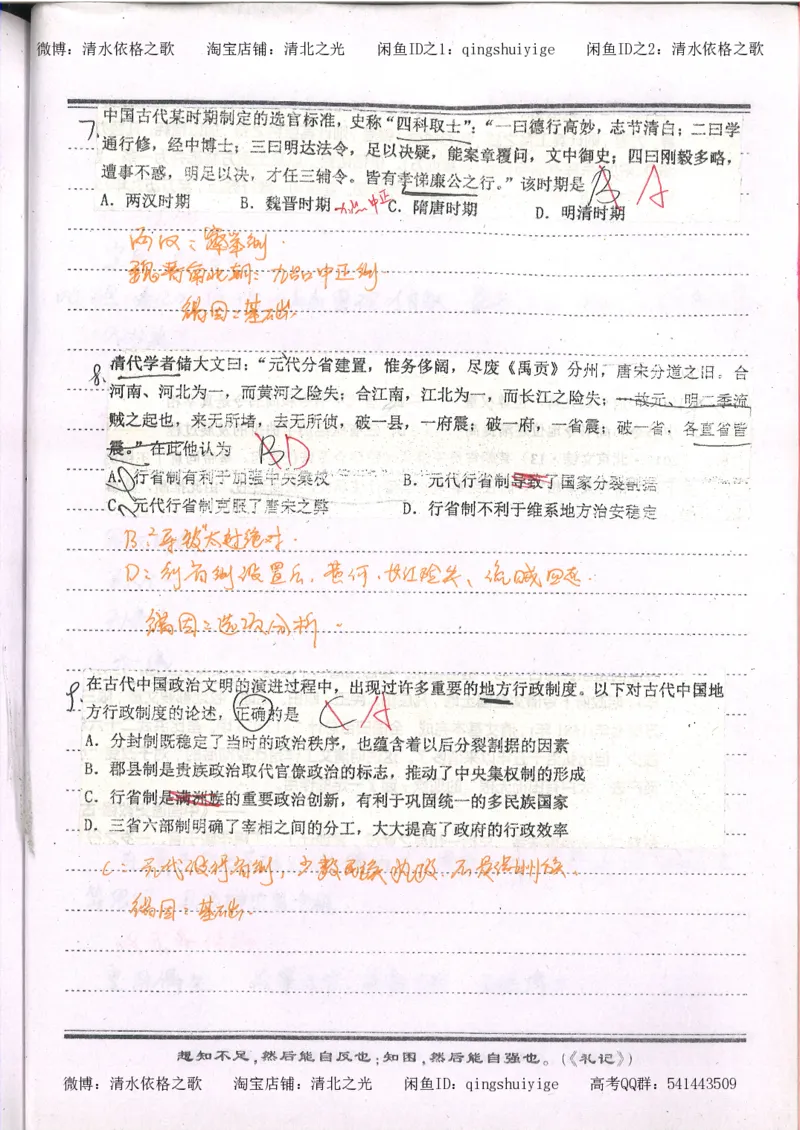 微博：清水依格之歌 淘宝店铺：清北之光 闲鱼ID之1：qingshuiyige 闲鱼ID之2：清水依格之歌
7. 中国古代某时期制定的选官标准，史称“四科取士”：“一曰德行高妙，志节清白；二曰学
通行修，经中博士；三曰明达法令，足以决疑，能案章覆问，文中御史；四曰刚毅多略，
遭事不惑，明足以决，才任三辅令。皆有孝悌廉公之行。”该时期是 B A
A．两汉时期 B．魏晋时期 九品中正 C．隋唐时期 D．明清时期
两汉：察举制.
魏晋南北朝：九品中正制
错因：基础.
8. 清代学者储大文曰：“元代分省建置，惟务侈阔，尽废《禹贡》分州，唐宋分道之旧。合
河南、河北为一，而黄河之险失；合江南，江北为一，而长江之险失；一故元、明二季流
贼之起也，来无所堵，去无所侦，破一县，一府震；破一府，一省震；破一省，各直省皆
震。”在此他认为 B D
A．行省制有利于加强中央集权 B．元代行省制导致了国家分裂割据
C．元代行省制克服了唐宋之弊 D．行省制不利于维系地方治安稳定
B：“导致”太过绝对.
D：行省制设置后，黄河、长江险失、流贼四起.
错因：选项分析.
9. 在古代中国政治文明的演进过程中，出现过许多重要的地方行政制度。以下对古代中国地
方行政制度的论述，正确的是 C A
A．分封制既稳定了当时的政治秩序，也蕴含着以后分裂割据的因素
B．郡县制是贵族政治取代官僚政治的标志，推动了中央集权制的形成
C．行省制是满洲族的重要政治创新，有利于巩固统一的多民族国家
D．三省六部制明确了宰相之间的分工，大大提高了政府的行政效率
C：元代设行省制，少数民族政权，不是满洲族.
错因：基础.
想知不足，然后能自反也；知困，然后能自强也。（《礼记》）
微博：清水依格之歌 淘宝店铺：清北之光 闲鱼ID：qingshuiyige 高考QQ群：541443509